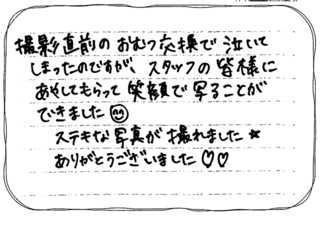 撮影直前のおむつ交換で泣いて
しまったのですが、スタッフの皆様に
あやしてもらって笑顔で写ることが
できました☺
ステキな写真が撮れました★
ありがとうございました♡♡